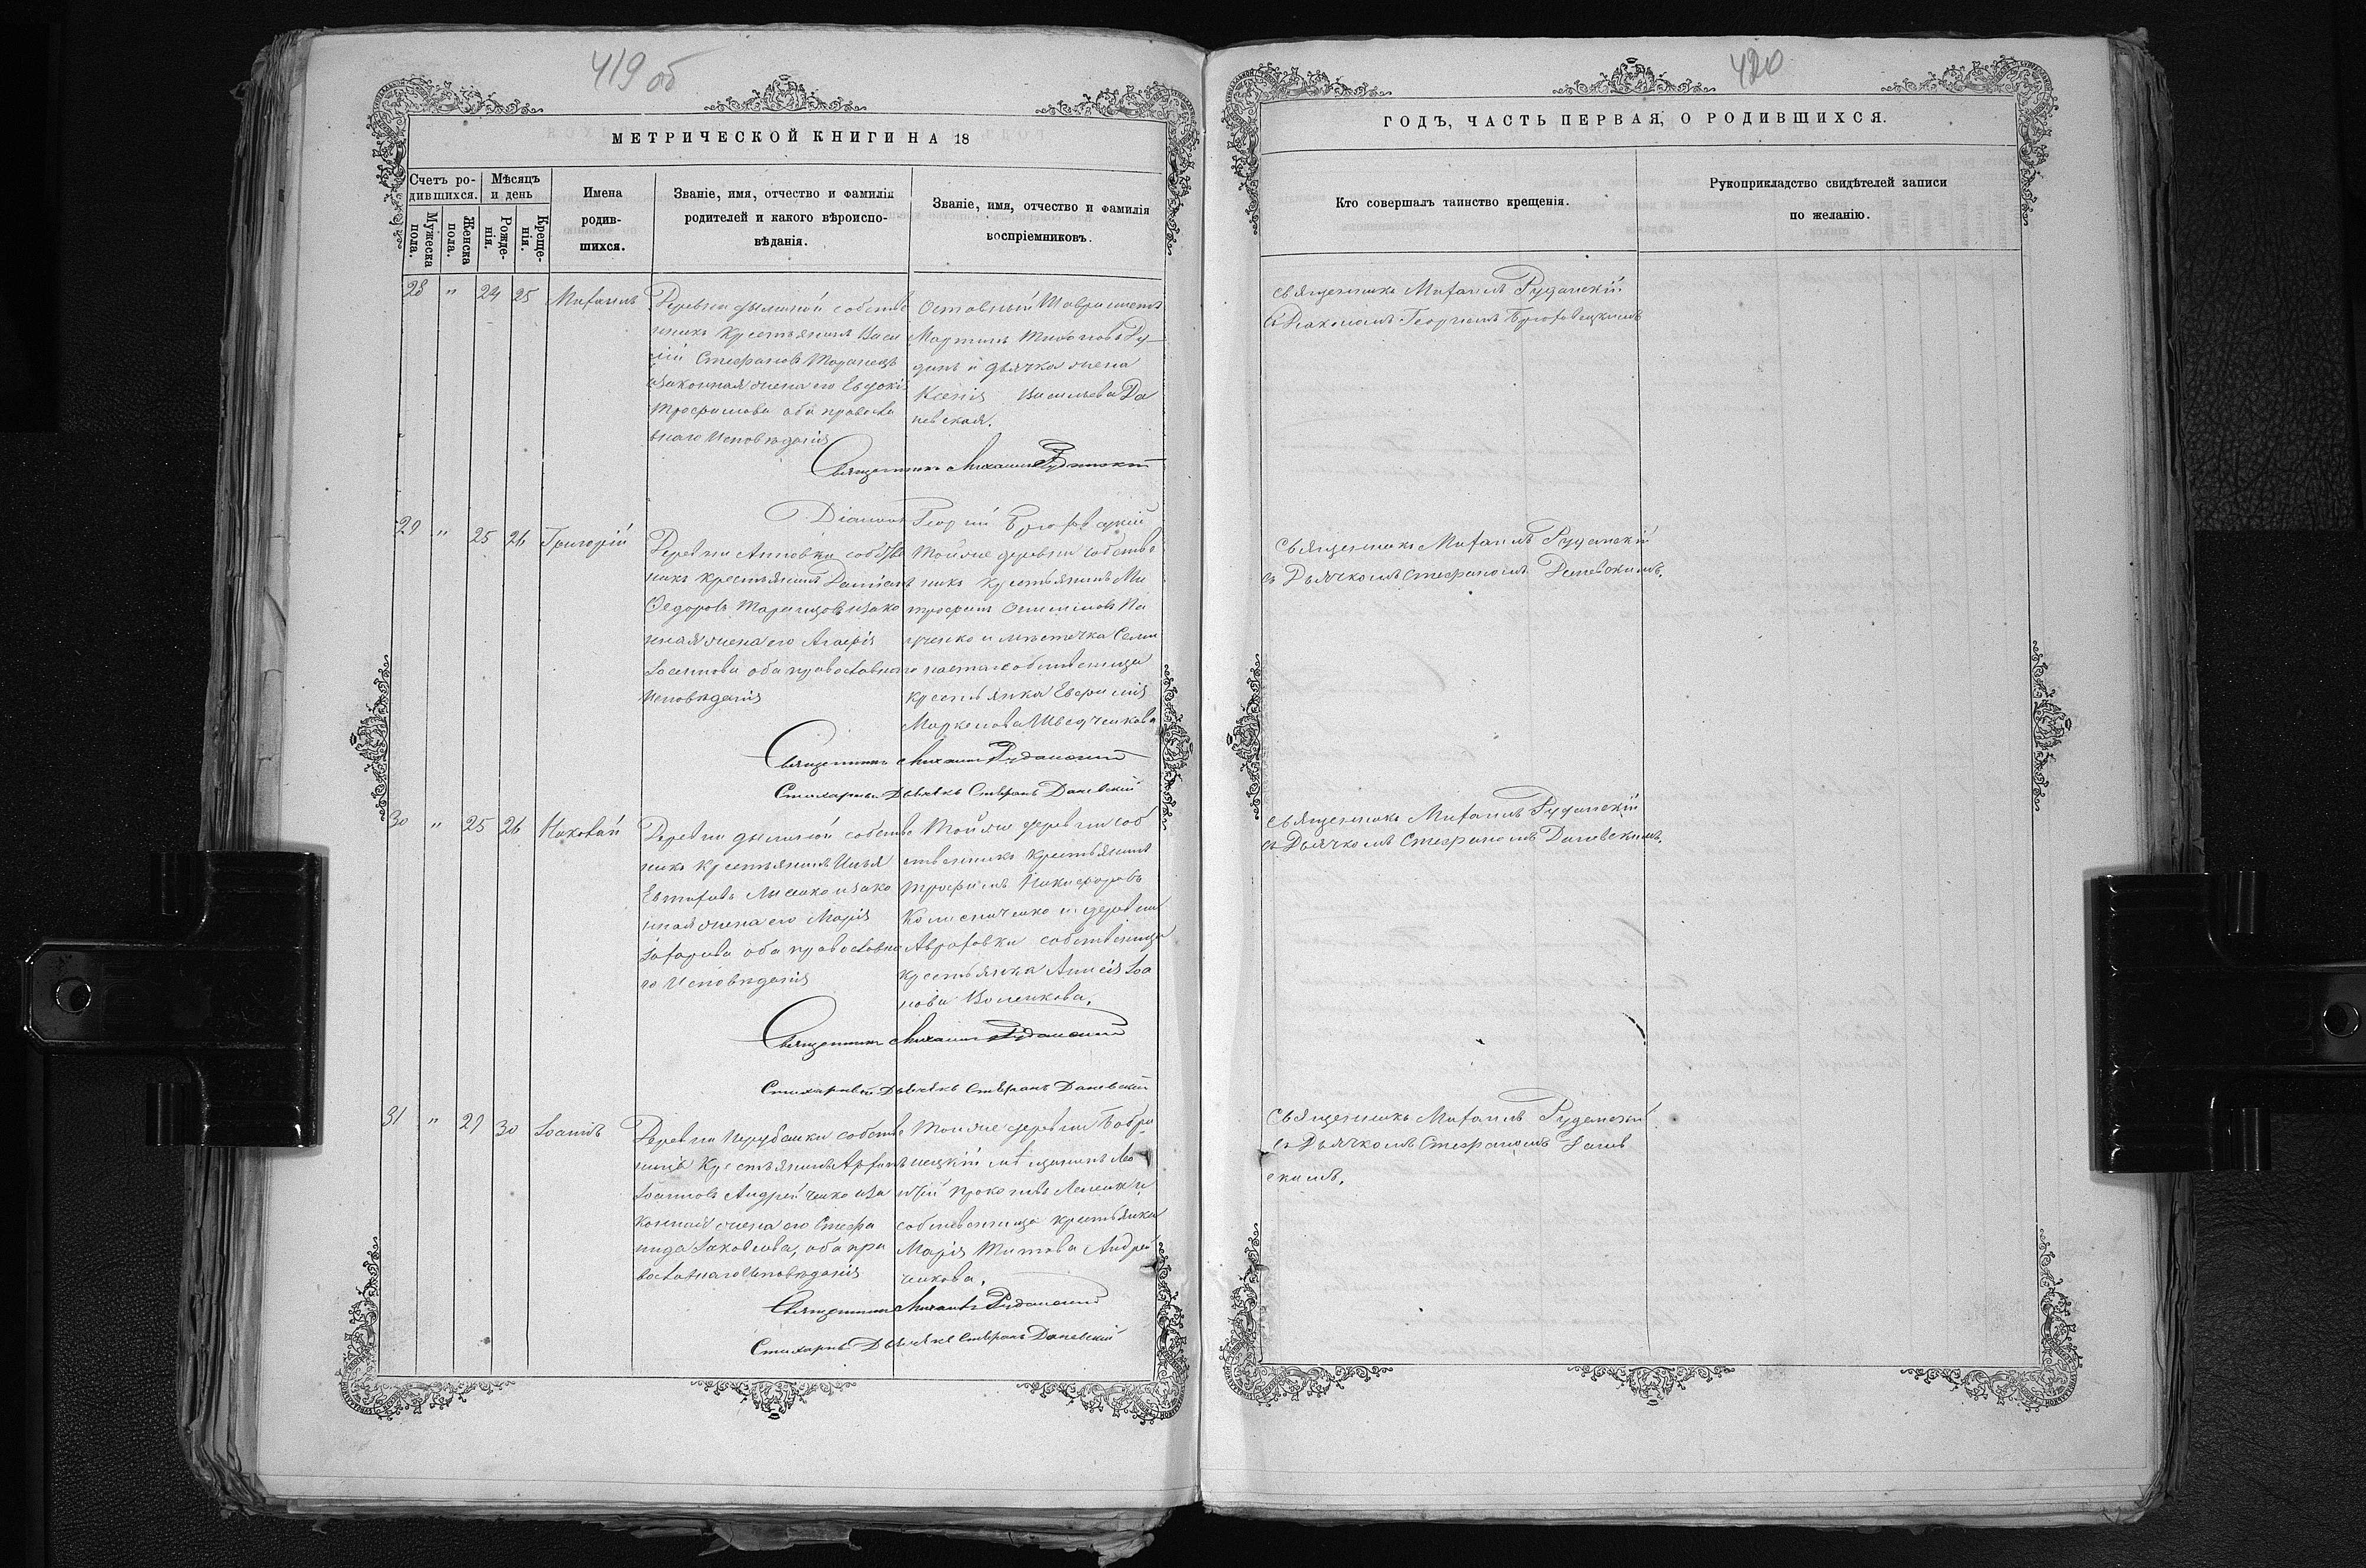 419 об
МЕТРИЧЕСКОЙ КНИГИ НА 18
Счетъ ро-
дившихся.
Мѣсяцъ
и день
Мужеска
пола.
Женска
пола.
Рожде-
нія.
Креще-
нія.
Имена
родив-
шихся.
Званіе, имя, отчество и фамилія
родителей и какого вѣроиспо-
вѣданія.
Званіе, имя, отчество и фамилія
воспріемниковъ.
28 " 24 25 Михаилъ
Деревни собстве
нникъ Крестьянинъ Васи
лій Стефановъ
изаконная жена его Евдокія
Трофимова оба правосла
внаго Исповѣданія
Мартинъ
и дьячка жена
Ксенія Васильева Да
невская.
Священникъ Михаилъ Руданскій
Діаконъ Георгій
29 " 25 26 Григорій
Деревни Анновки собстве
никъ крестьянинъ Даміанъ
Ѳедоровъ изако
нная жена его Агафія
Іоаннова оба православнаго
Исповѣданія
Тойже деревни собстве
никъ крестьянинъ Ми
трофанъ
и мѣстечка
собственница
крестьянка Евфимія
Маркелова Шведченкова
Священникъ Михаилъ Руданскій
Стихарный Дьячекъ Стефанъ Даневскій
30 " 25 26 Николай
Деревни собстве
никъ Крестьянинъ Илья
Евтифевъ изако
нная жена его Марія
Захарова оба православна
го Исповѣданія
Тойже деревни соб
ственникъ Крестьянинъ
Трофимъ Никифоровъ
Колесниченко и деревни
собственница
крестьянка Анисія Іоа
нова
Священникъ Михаилъ Руданскій
Стихарный Дьячекъ Стефанъ Даневскій
31 " 29 30 Іоаннъ
Деревни собстве
ницъ Крестьянинъ
Іоанновъ Андрейченко иза
конная жена его Стефа
нида Іаковлева, оба пра
вославнаго Исповѣданія
Тойже деревни Бобри
нецкій мѣщанинъ Лео
нтій
собственница крестьянка
Марія Титова Андрей
ченкова.
Священникъ Михаилъ Руданскій
Стихарный Дьячекъ Стефанъ Даневскій
420
ГОДЪ, ЧАСТЬ ПЕРВАЯ, О РОДИВШИХСЯ.
Кто совершалъ таинство крещенія.
Рукоприкладство свидѣтелей записи
по желанію.
Священникъ Михаилъ Руданскій
съ Діакономъ Георгіемъ
Священникъ Михаилъ Руданскій
съ Дьячкомъ Стефаномъ Даневскимъ.
Священникъ Михаилъ Руданскій
съ Дьячкомъ Стефаномъ Даневскимъ.
Священникъ Михаилъ Руданскій
съ Дьячкомъ Стефаномъ Данев
скимъ.